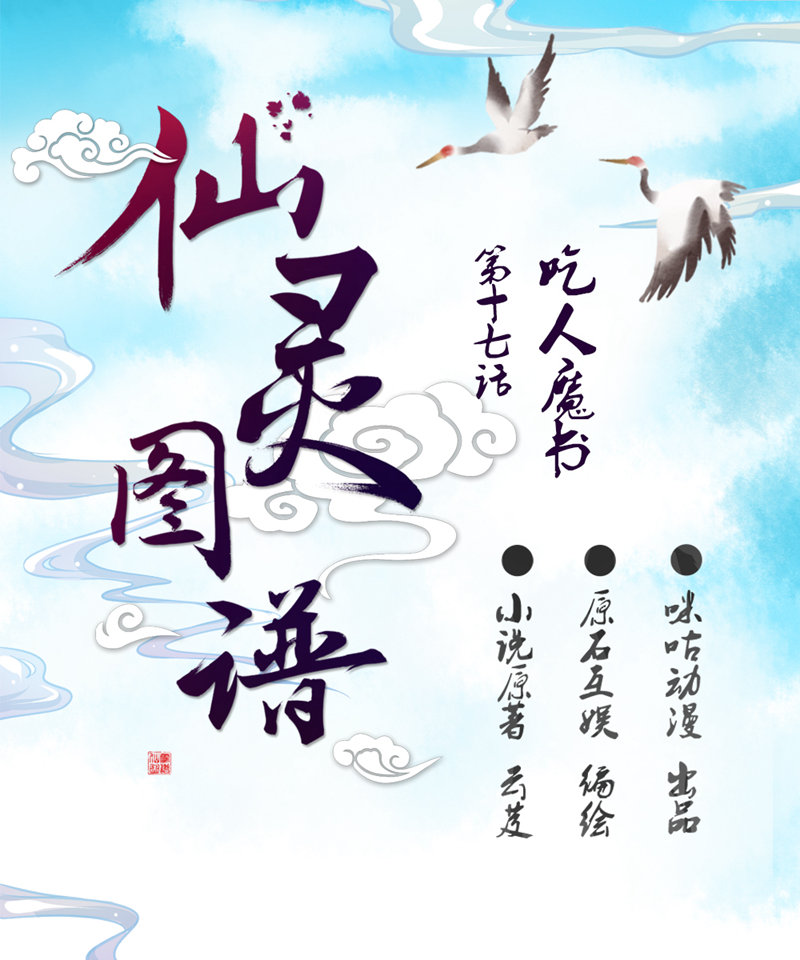 仙灵图谱
第十七话
吃人魔书
咪咕动漫 出品
原石互娱 编绘
小说原著 云芨